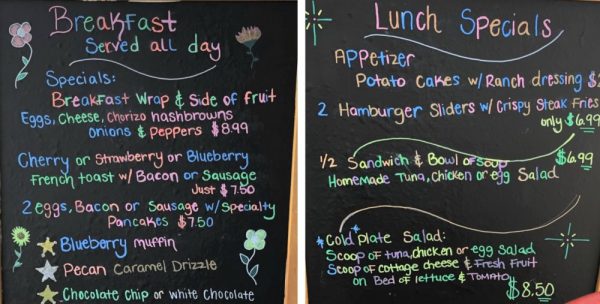 Breakfast
Served all day
Specials:
Breakfast Wrap & Side of fruit
Eggs, Cheese, Chorizo hashbrowns
onions & peppers $8.99
Cherry or Strawberry or Blueberry
French toast w/ Bacon or Sausage
Just $7.50
2 eggs, Bacon or Sausage w/ Specialty
Pancakes $7.50
Blueberry muffin
Pecan Caramel Drizzle
Chocolate Chip or White Chocolate
Lunch Specials
Appetizer
Potato Cakes w/ Ranch dressing
2 Hamburger Sliders w/ Crispy Steak Fries
only $6.99
1/2 Sandwich & Bowl of Soup $6.99
Homemade Tuna, Chicken or egg Salad
*Cold* Plate Salad:
Scoop of tuna, chicken or egg Salad
Scoop of cottage cheese & Fresh Fruit
on Bed of lettuce & Tomato
$8.50